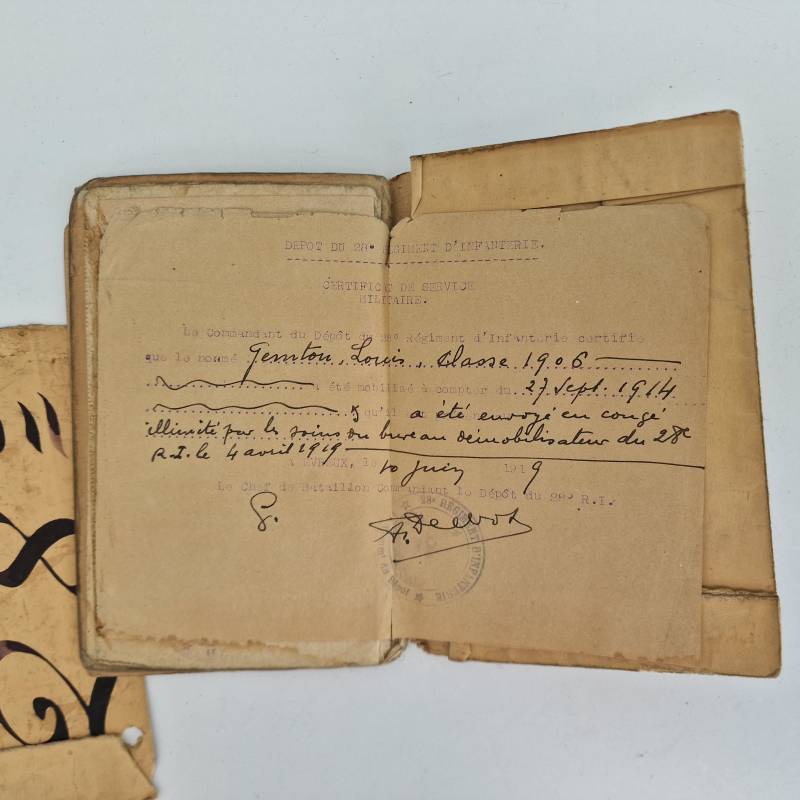 DEPOT DU 28e REGIMENT D'INFANTERIE.
CERTIFICAT DE SERVICE
MILITAIRE.
Le Commandant du Dépôt du 28e Régiment d'Infanterie certifie
que le nommé Louis, classe 1906
a été mobilisé à compter du 27 Sept. 1914
& qu'il a été envoyé en congé
illimité par les soins du bureau démobilisateur du 28e
R.I. le 4 avril 1919
A EVREUX, le 10 Juin 1919
Le Chef de Bataillon Commandant le Dépôt du 28e R.I.
28e REGIMENT D'INFANTERIE